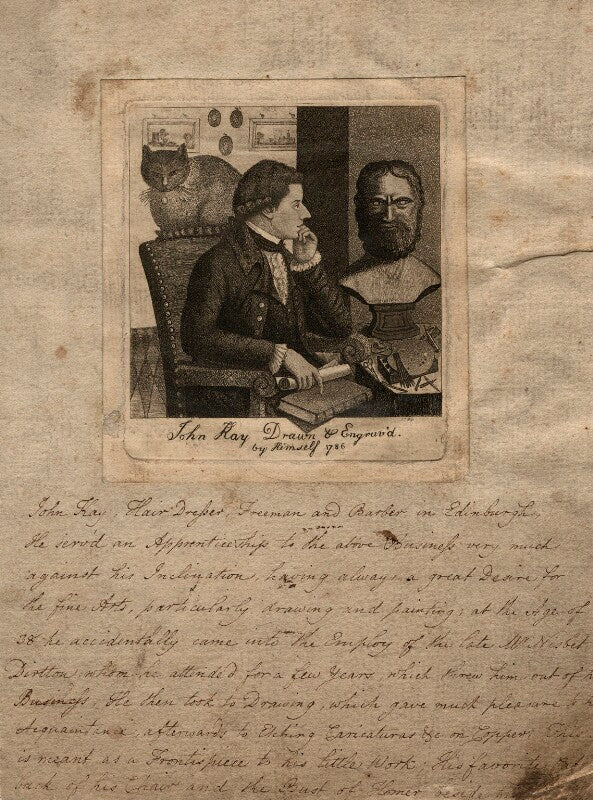 John Kay Drawn & Engrav'd.
by Himself 1786
John Kay, Hair Dresser, Freeman and Barber in Edinburgh,
He serv'd an Apprenticeship to the above Business very much
against his Inclination, having always a great Desire for
the fine Arts, particularly drawing and painting; at the Age of
38 he accidentally came into the Employ of the late Mr. Nisbet
Dirlton, whom he attended for a few Years, which threw him out of
Business, He then took to Drawing, which gave much pleasure
Acquaintance, afterwards to Etching Caricaturas &c on Copper. This
is meant as a Frontispiece to his little Work, His favorite
back of his Chair and the Bust of Homer beside